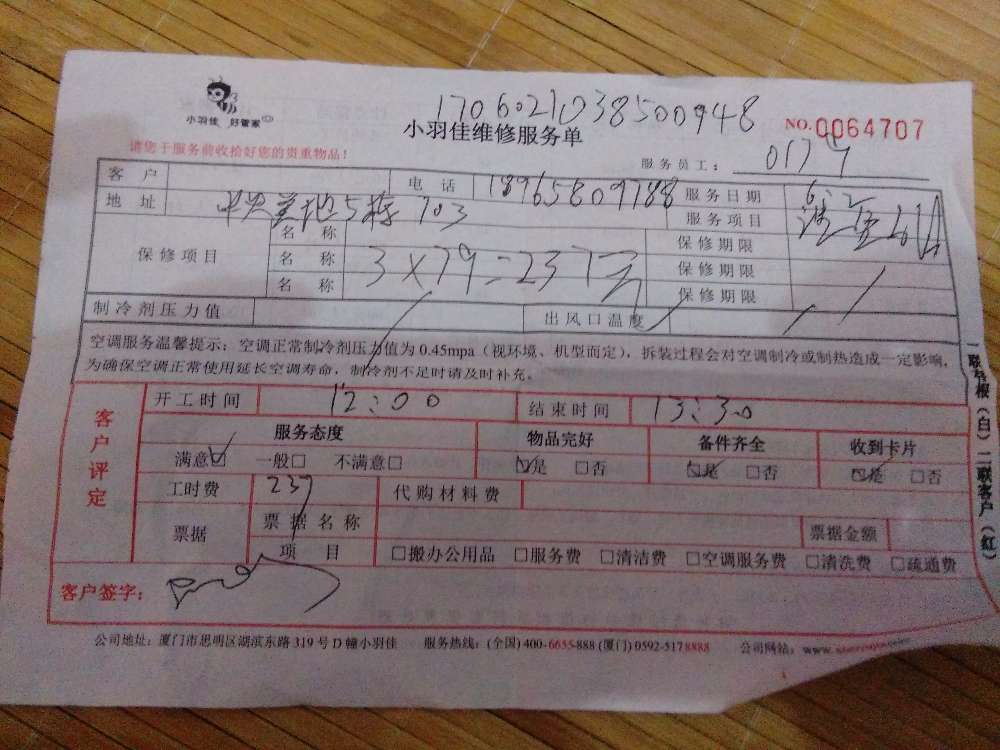 小羽佳 好管家
1706021038500948
小羽佳维修服务单
NO.0064707
请您于服务前收拾好您的贵重物品！
服务员工：
客户 电话 18965809788 服务日期 6.2
地址 5栋 703 服务项目
保修项目 名称 保修期限
名称 3×79=237元 保修期限
名称 保修期限
制冷剂压力值 出风口温度
空调服务温馨提示：空调正常制冷剂压力值为 0.45mpa（视环境、机型而定），拆装过程会对空调制冷或制热造成一定影响，
为确保空调正常使用延长空调寿命，制冷剂不足时请及时补充。
客户评定
开工时间 12:00 结束时间 13:30
服务态度 物品完好 备件齐全 收到卡片
满意☑ 一般□ 不满意□ ☑是 □否 ☑是 □否 ☑是 □否
工时费 237 代购材料费
票据 票据名称 票据金额
项目 □搬办公用品 □服务费 □清洁费 □空调服务费 □清洗费 □疏通费
客户签字：
公司地址：厦门市思明区湖滨东路 319 号 D 幢小羽佳 服务热线：(全国) 400-6655-888 (厦门) 0592-5178888 公司网站：
一联存根（白）二联客户（红）